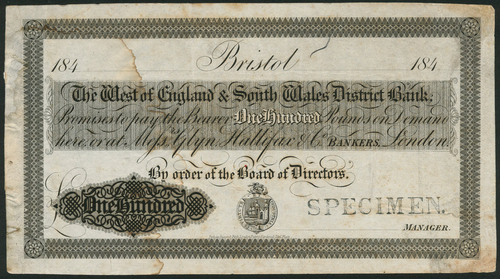 184 Bristol 184
The West of England & South Wales District Bank,
Promises to pay the Bearer One Hundred Pounds on Demand
here, or at Messrs. Glyn, Hallifax & Co. BANKERS, London
By order of the Board of Directors.
£ One Hundred
SPECIMEN.
MANAGER.